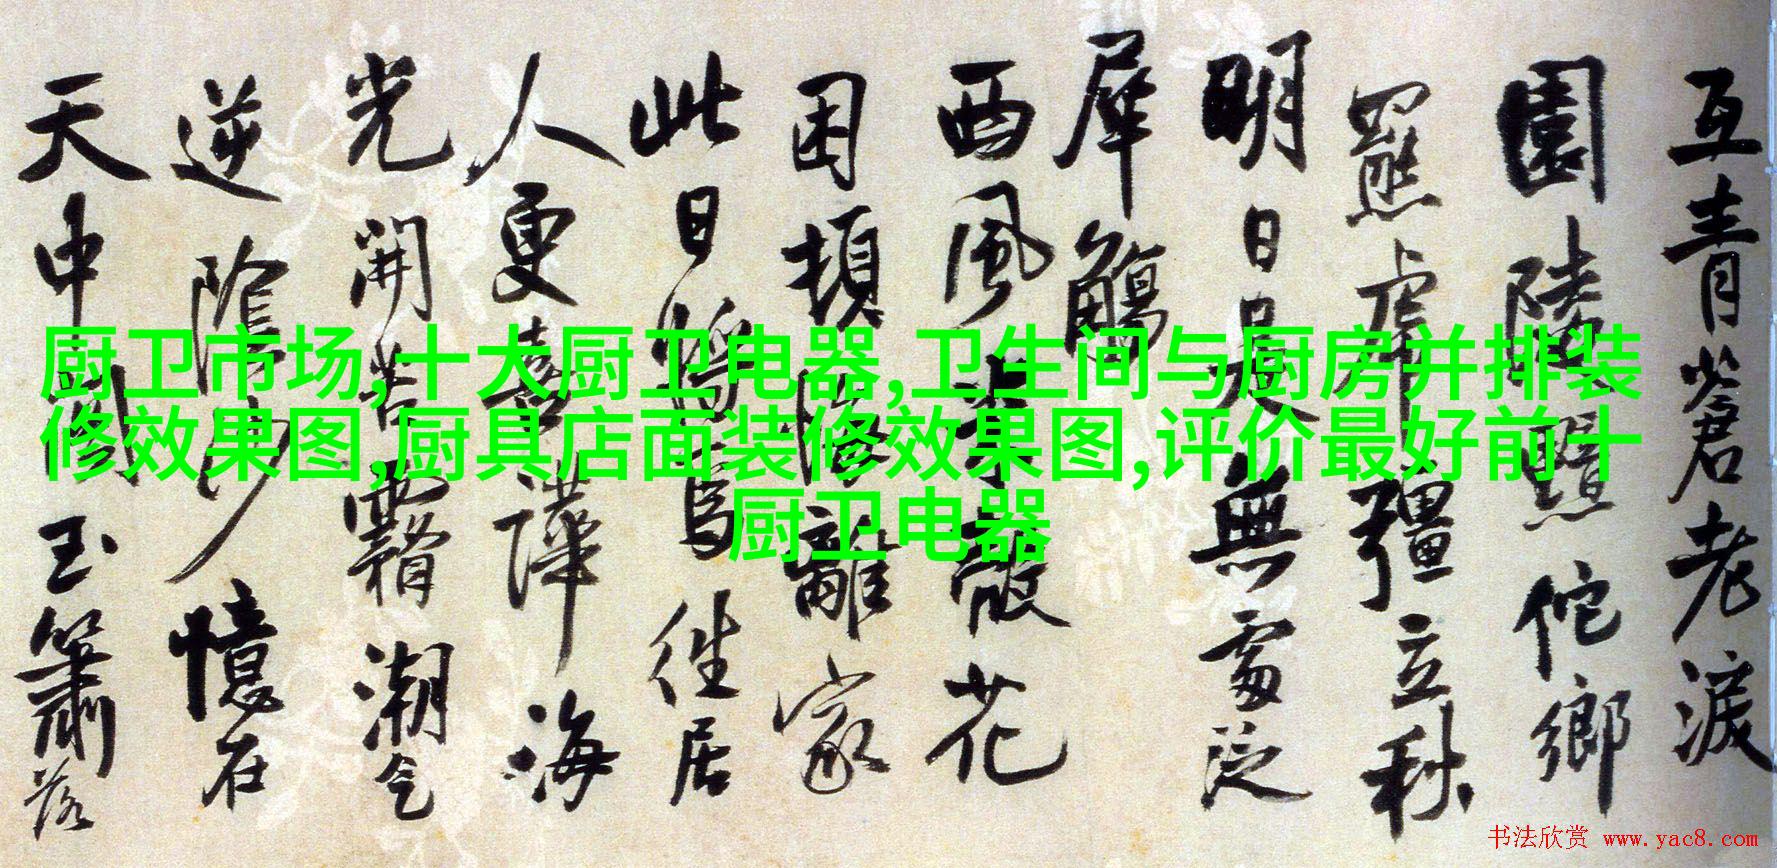 厨卫市场,十大厨卫电器,卫生间与厨房并排装
修效果图,厨具店面装修效果图,评价最好前十
厨卫电器
互青蒼老淚
園陵佗鄉
羆虎彊立秋
明日是無處泛
犀觴
西風散花
困頓離家
此日往居
人更喜海
光開苦潮气
逆陰憶在
天中玉簫落
书法欣赏 www.yac8.com